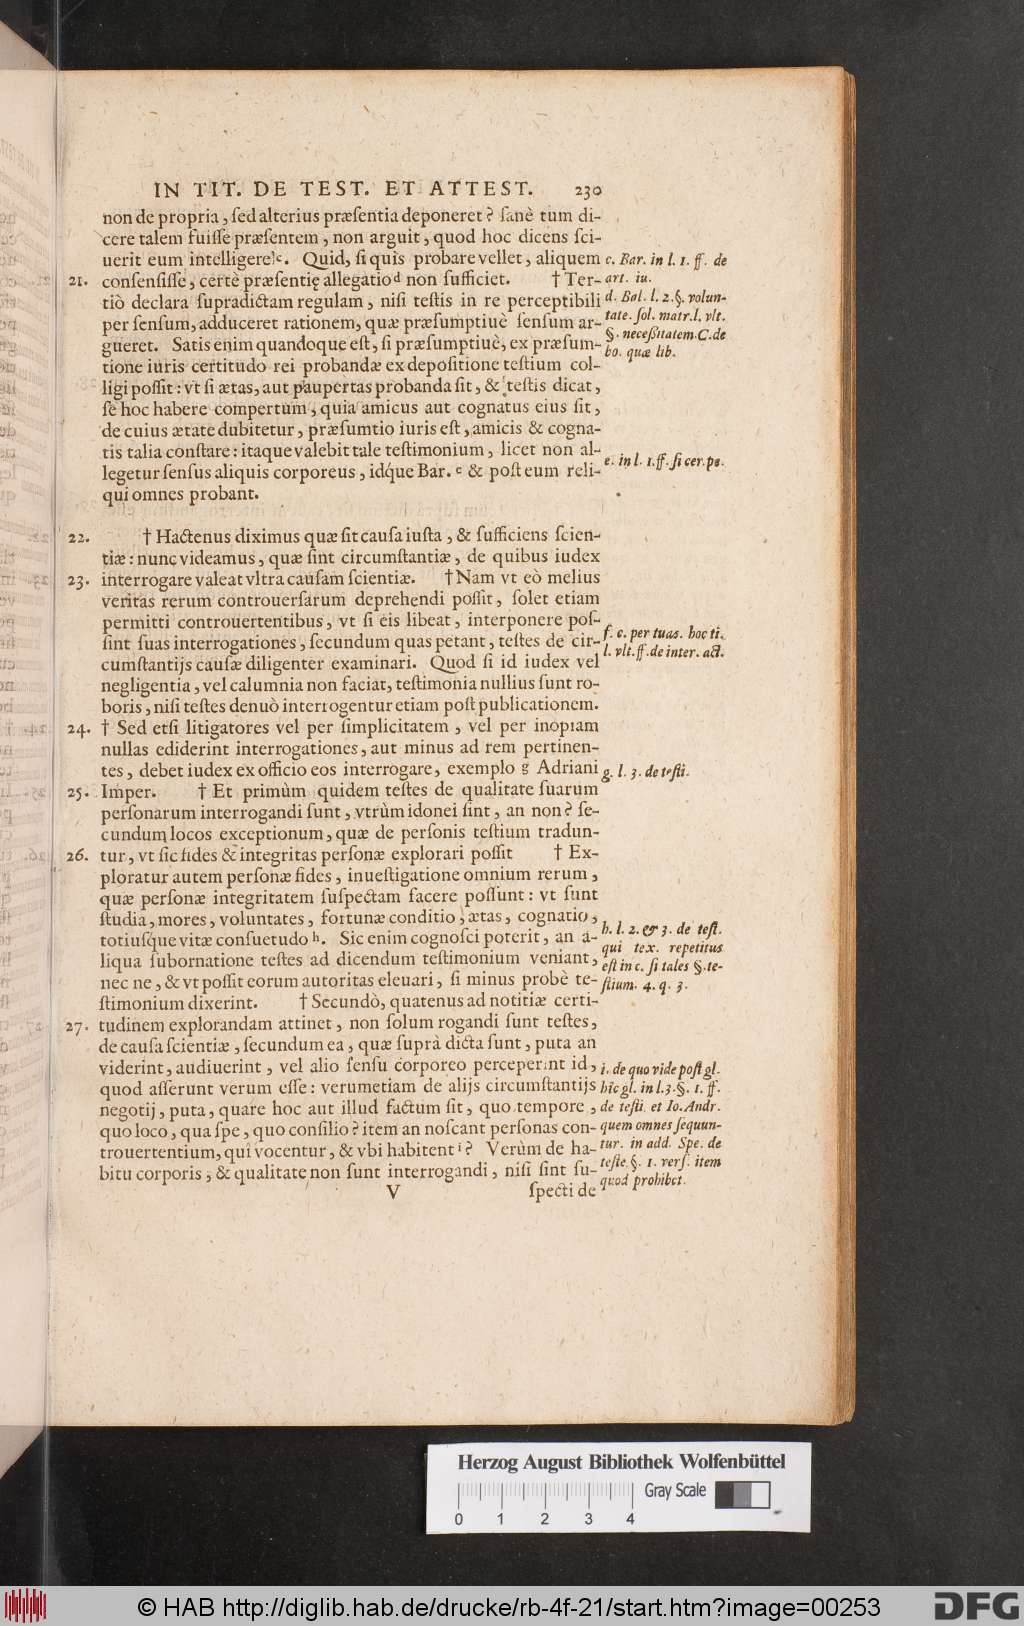 IN TIT. DE TEST. ET ATTEST. 230
non de propria, ſed alterius præſentia deponeret? ſanè tum di-
cere talem fuiſſe præſentem, non arguit, quod hoc dicens ſci-
uerit eum intelligere c. Quid, ſi quis probare vellet, aliquem
21. conſenſiſſe, certè præſentię allegatio d non ſufficiet. † Ter-
tiò declara ſupradictam regulam, niſi teſtis in re perceptibili
per ſenſum, adduceret rationem, quæ præſumptiuè ſenſum ar-
gueret. Satis enim quandoque eſt, ſi præſumptiuè, ex præſum-
tione iuris certitudo rei probandæ ex depoſitione teſtium col-
ligi poſſit: vt ſi ætas, aut paupertas probanda ſit, & teſtis dicat,
ſe hoc habere compertum, quia amicus aut cognatus eius ſit,
de cuius ætate dubitetur, præſumtio iuris eſt, amicis & cogna-
tis talia conſtare: itaque valebit tale teſtimonium, licet non al-
legetur ſenſus aliquis corporeus, idq́ue Bar. e & poſt eum reli-
qui omnes probant.
c. Bar. in l. 1. ff. de
art. iu.
d. Bal. l. 2. §. volun-
tate. ſol. matr. l. vlt.
§. neceßitatem. C. de
bo. quæ lib.
e. in l. 1. ff. ſi cer. pe.
22. † Hactenus diximus quæ ſit cauſa iuſta, & ſufficiens ſcien-
tiæ: nunc videamus, quæ ſint circumſtantiæ, de quibus iudex
23. interrogare valeat vltra cauſam ſcientiæ. † Nam vt eò melius
veritas rerum controuerſarum deprehendi poſſit, ſolet etiam
permitti controuertentibus, vt ſi eis libeat, interponere poſ-
ſint ſuas interrogationes, ſecundum quas petant, teſtes de cir-
cumſtantijs cauſæ diligenter examinari. Quod ſi id iudex vel
negligentia, vel calumnia non faciat, teſtimonia nullius ſunt ro-
boris, niſi teſtes denuò interrogentur etiam poſt publicationem.
24. † Sed etſi litigatores vel per ſimplicitatem, vel per inopiam
nullas ediderint interrogationes, aut minus ad rem pertinen-
tes, debet iudex ex officio eos interrogare, exemplo g Adriani
25. Imper. † Et primùm quidem teſtes de qualitate ſuarum
perſonarum interrogandi ſunt, vtrùm idonei ſint, an non? ſe-
cundum locos exceptionum, quæ de perſonis teſtium tradun-
26. tur, vt ſic fides & integritas perſonæ explorari poſſit † Ex-
ploratur autem perſonæ fides, inueſtigatione omnium rerum,
quæ perſonæ integritatem ſuſpectam facere poſſunt: vt ſunt
ſtudia, mores, voluntates, fortunæ conditio, ætas, cognatio,
totiuſq́ue vitæ conſuetudo h. Sic enim cognoſci poterit, an a-
liqua ſubornatione teſtes ad dicendum teſtimonium veniant,
nec ne, & vt poſſit eorum autoritas eleuari, ſi minus probè te-
ſtimonium dixerint. † Secundò, quatenus ad notitiæ certi-
27. tudinem explorandam attinet, non ſolum rogandi ſunt teſtes,
de cauſa ſcientiæ, ſecundum ea, quæ ſuprà dicta ſunt, puta an
viderint, audiuerint, vel alio ſenſu corporeo perceperint id,
quod aſſerunt verum eſſe: verumetiam de alijs circumſtantijs
negotij, puta, quare hoc aut illud factum ſit, quo tempore,
quo loco, qua ſpe, quo conſilio? item an noſcant perſonas con-
trouertentium, quî vocentur, & vbi habitent i? Verùm de ha-
bitu corporis, & qualitate non ſunt interrogandi, niſi ſint ſu-
f. c. per tuas. hoc ti.
l. vlt. ff. de inter. act.
g. l. 3. de teſti.
h. l. 2. & 3. de teſt.
qui tex. repetitus
eſt in c. ſi tales §. te-
ſtium. 4. q. 3.
i. de quo vide poſt gl.
hîc gl. in l. 3. §. 1. ff.
de teſti. et Io. Andr.
quem omnes ſequun-
tur. in add. Spe. de
teſte. §. 1. verſ. item
quod prohibet.
V ſpecti de
Herzog August Bibliothek Wolfenbüttel
Gray Scale
0 1 2 3 4
© HAB http://diglib.hab.de/drucke/rb-4f-21/start.htm?image=00253
DFG